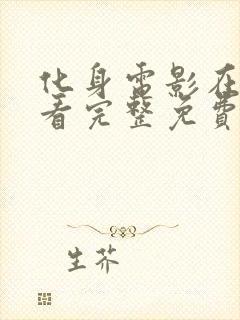 化身電影在
看完整免費
生芥